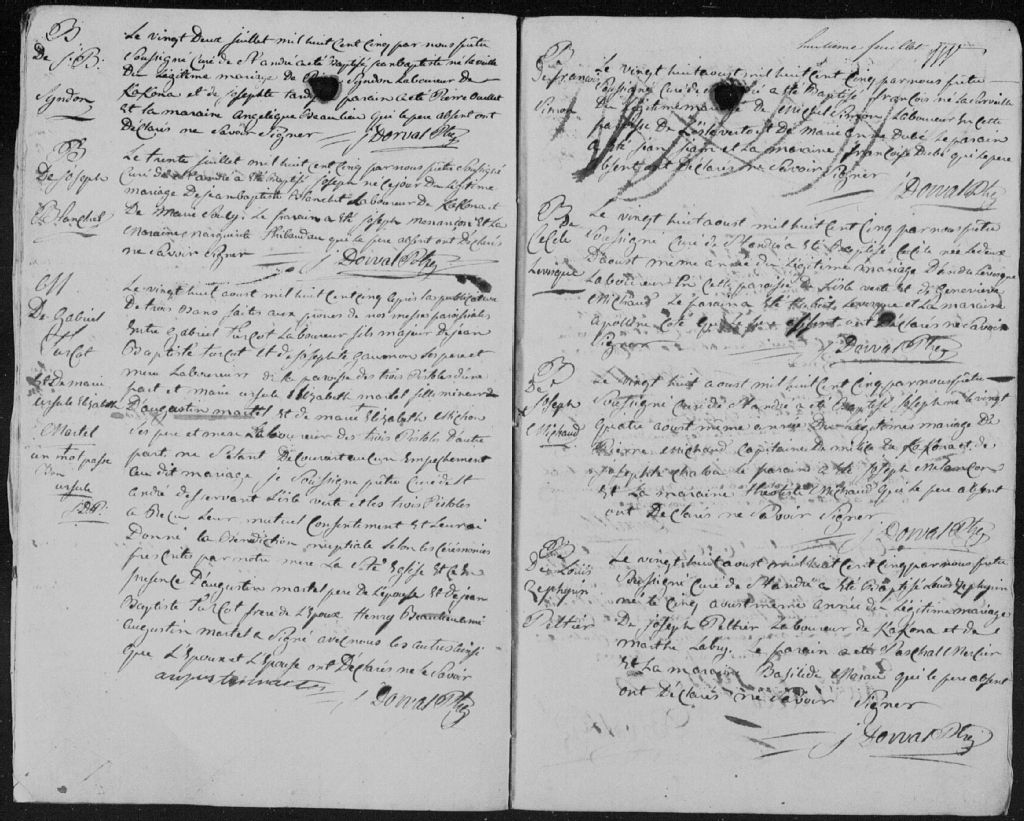 B
De J. B:
Syndon
Le vingt Deux juillet mil huit Cent Cinq par nous prêtre
Soussigné Curé de St andré a été Baptisé jean baptiste né la veille
Du légitime mariage de Syndon Laboureur de
KaKona et de josephte parain a été Pierre Ouellet
Et la maraine Angelique Beaulieu qui le pere absent ont
Déclarés ne Savoir Signer
J Dorval Ptre
B
De Joseph
Blanchet
Le trente juillet mil huit Cent Cinq par nous prêtre Soussigné
Curé de St andré a été Baptisé joseph né Ce jour Du légitime
mariage De jean baptiste Blanchet Laboureur de KaKona et
De Marie Le parain a été joseph Et la
Maraine Marguerite Thibaudau qui le pere absent ont Déclarés
ne Savoir Signer
J Dorval Ptre
M
De Gabriel
Turcot
Et De marie
ursule Elizabeth
Martel
un mot passé
Bon
ursule
J D Ptr
Le vingt huit aout mil huit Cent Cinq après la publication
De trois Bans faits aux prones de nos messes paroissiales
Entre Gabriel Turcot Laboureur fils majeur de jean
Baptiste Turcot Et de josephte Gaumon Ses pere et
mere Laboureurs de la paroisse des trois Pistoles d'une
part et marie ursule Elizabeth martel fille mineure
D'augustin martel Et de marie Elizabeth Michon
Ses pere et mere Laboureur des trois Pistoles D'autre
part ne S'étant Découvert aucun Empechement
au dit mariage je Soussigné prêtre Curé de St
andré desservant L'isle verte et les trois Pistoles
a Recu Leur mutuel Consentement Et Leur ai
Donné la Bénédiction nuptiale Selon les Cérémonies
prescrites par notre mere La Ste Eglise Et Ce En
presence D'augustin martel pere de L'epouse Et de jean
Baptiste Turcot frere de L'Epoux Henry Beaulieu ami
augustin Martel a Signé avec nous les autres ainsi
que L'Epoux et L'Epouse ont Déclarés ne Savoir
augustin martel
J Dorval Ptre
huitieme feuillet
B
De francois
Simon
Le vingt huit aout mil huit Cent Cinq par nous prêtre
Soussigné Curé de a été Baptisé françois né La veille
Du légitime mariage de Michel Simon Laboureur En Cette
paroisse De L'isle verte et De Marie anne Dubé Le parain
a été jean et La maraine françoise Dubé qui le pere
absent ont Déclarés ne Savoir Signer
J Dorval Ptre
B
De
Cecile
Levesque
Le vingt huit aout mil huit Cent Cinq par nous prêtre
Soussigné Curé de St andré a été Baptisé Cecile née Le deux
D'aout meme année Du légitime mariage D'andre Levesque
Laboureur En Cette paroisse de L'isle verte et De Genevieve
Michaud Le parain a été Levesque et La maraine
Apolline Coté qui le pere absent ont Déclarés ne Savoir
Signer
J Dorval Ptre
B
De
Joseph
Michaud
Le vingt huit aout mil huit Cent Cinq par nous prêtre
Soussigné Curé de St andré a été Baptisé Joseph né le vingt
quatre aout meme année Du légitime mariage De
Pierre Michaud Capitaine De milice De KaKona et de
Josephte Le parain a été Joseph Melancon
Et La maraine Michaud qui le pere absent
ont Déclarés ne Savoir Signer
J Dorval Ptre
B
De Louis
Zephyrin
Peltier
Le vingt huit aout mil huit Cent Cinq par nous prêtre
Soussigné Curé de St andré a été Baptisé Louis Zephyrin
né le Cinq aout meme année du Légitime mariage
De Joseph Peltier Laboureur de KaKona et de
Marthe Le parain a été Paschal Mercier
Et La maraine Basilide Moreau qui le pere absent
ont Déclarés ne Savoir Signer
J Dorval Ptre